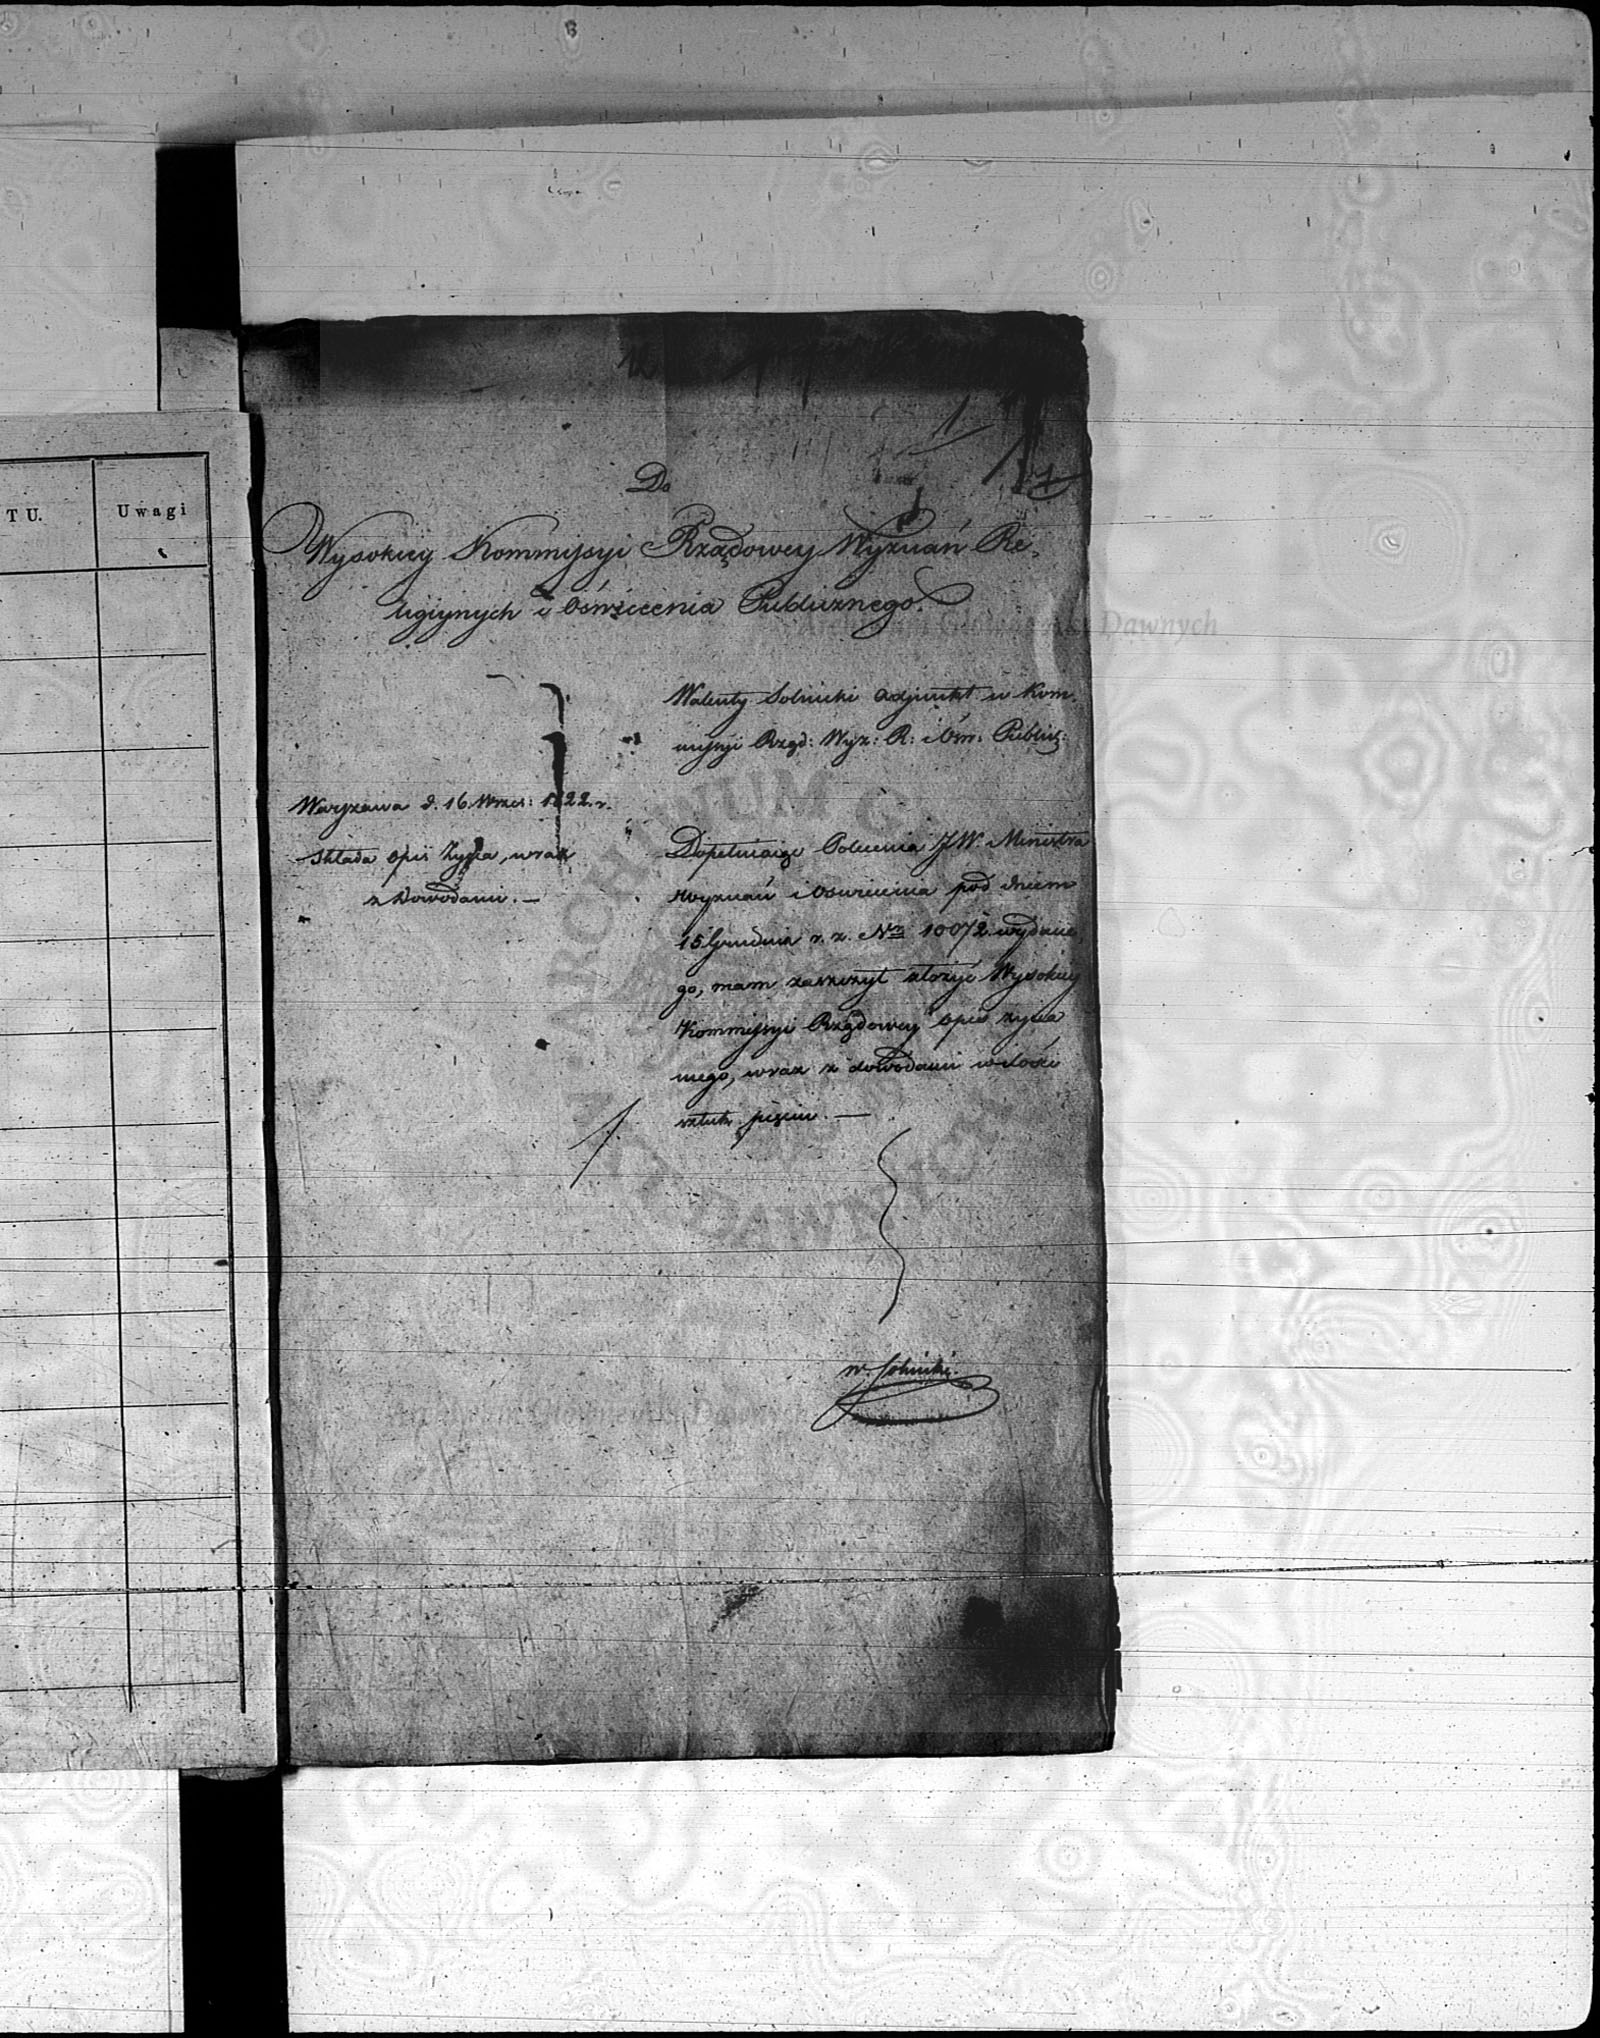 T U.
Uwagi
1
Do
Wysokiey Kommissyi Rządowey Wyznań Re-
ligiynych i Oświecenia Publicznego.
Walenty Solnicki Adjunkt w Kom-
missyi Rząd: Wyz: R: i Ośw: Public:
Warszawa d. 16. Wrześ: 1822. r.
składa opis Życia, wraz
z Dowodami. —
Dopełniaiąc Polecenia JW. Ministra
Wyznań i Oświecenia pod dniem
15 Grudnia r. z. Nr 10072. wydane-
go, mam zaszczyt złożyć Wysokiey
Kommissyi Rządowey opis życia
mego, wraz z dowodami w ilości
sztuk pięciu. —
W. Solnicki.
Archiwum Główne Akt Dawnych
ARCHIWUM G
AKT DAWNYCH
Archiwum Główne Akt Dawnych